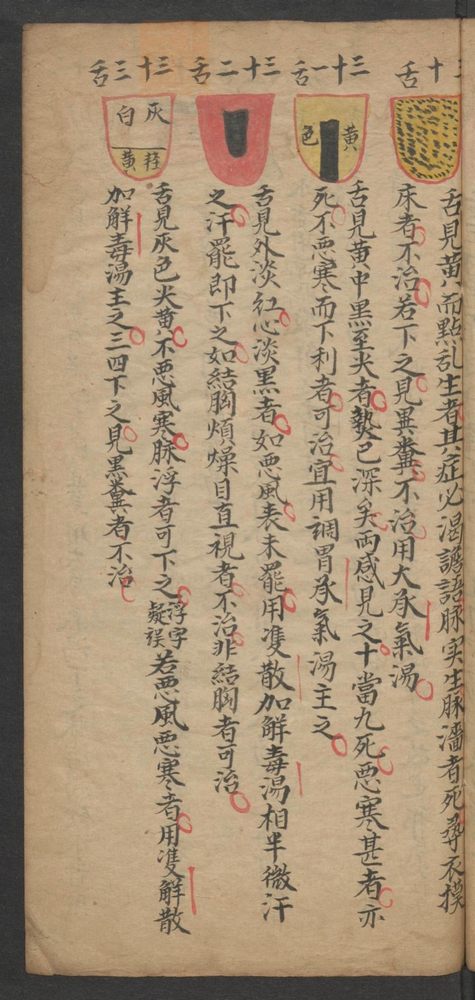 十舌
舌見黃而黑點乱生者其症必渴譫語脉实生脉濇者死尋衣摸
床者不治若下之見異糞不治用大承氣湯
三十一舌
黃色
舌見黃中黑至尖者𤍠已深矣両感見之十當九死惡寒甚者亦
死不惡寒而下利者可治宜用調胃承氣湯主之
三十二舌
舌見外淡紅心淡黑者如惡風表未罷用䨇散加解毒湯相半微汗
之汗罷即下之如結胸煩燥目直視者不治非結胸者可治
三十三舌
灰白
黃
舌見灰色尖黃不惡風寒脉浮者可下之浮字疑误若惡風惡寒者用䨇解散
加解毒湯主之三四下之見黑糞者不治